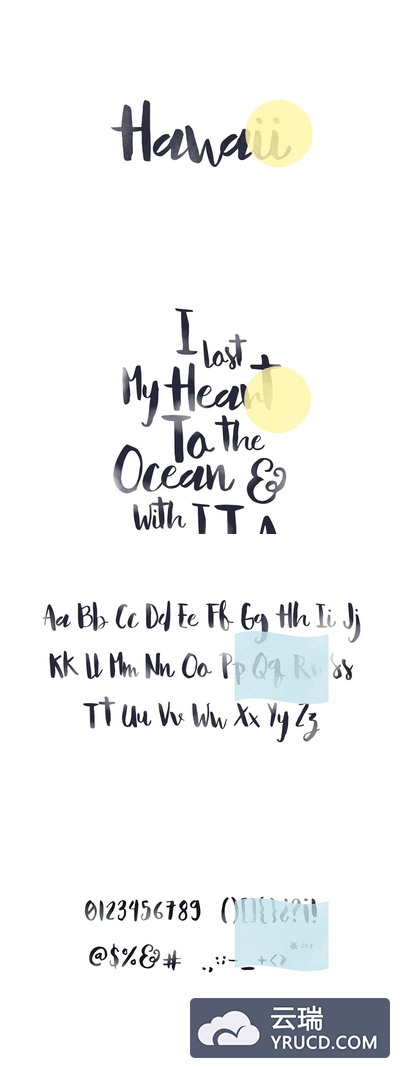 Hawaii
I Lost
My Heart
To the
Ocean &
With
Aa Bb Cc Dd Ee Ff Gg Hh Ii Jj
Kk Ll Mm Nn Oo Pp Qq Rr Ss
Tt Uu Vv Ww Xx Yy Zz
0123456789 ()[]{}¿?¡!
@$%&#.,:;-_+<>
云瑞
YRUCD.COM